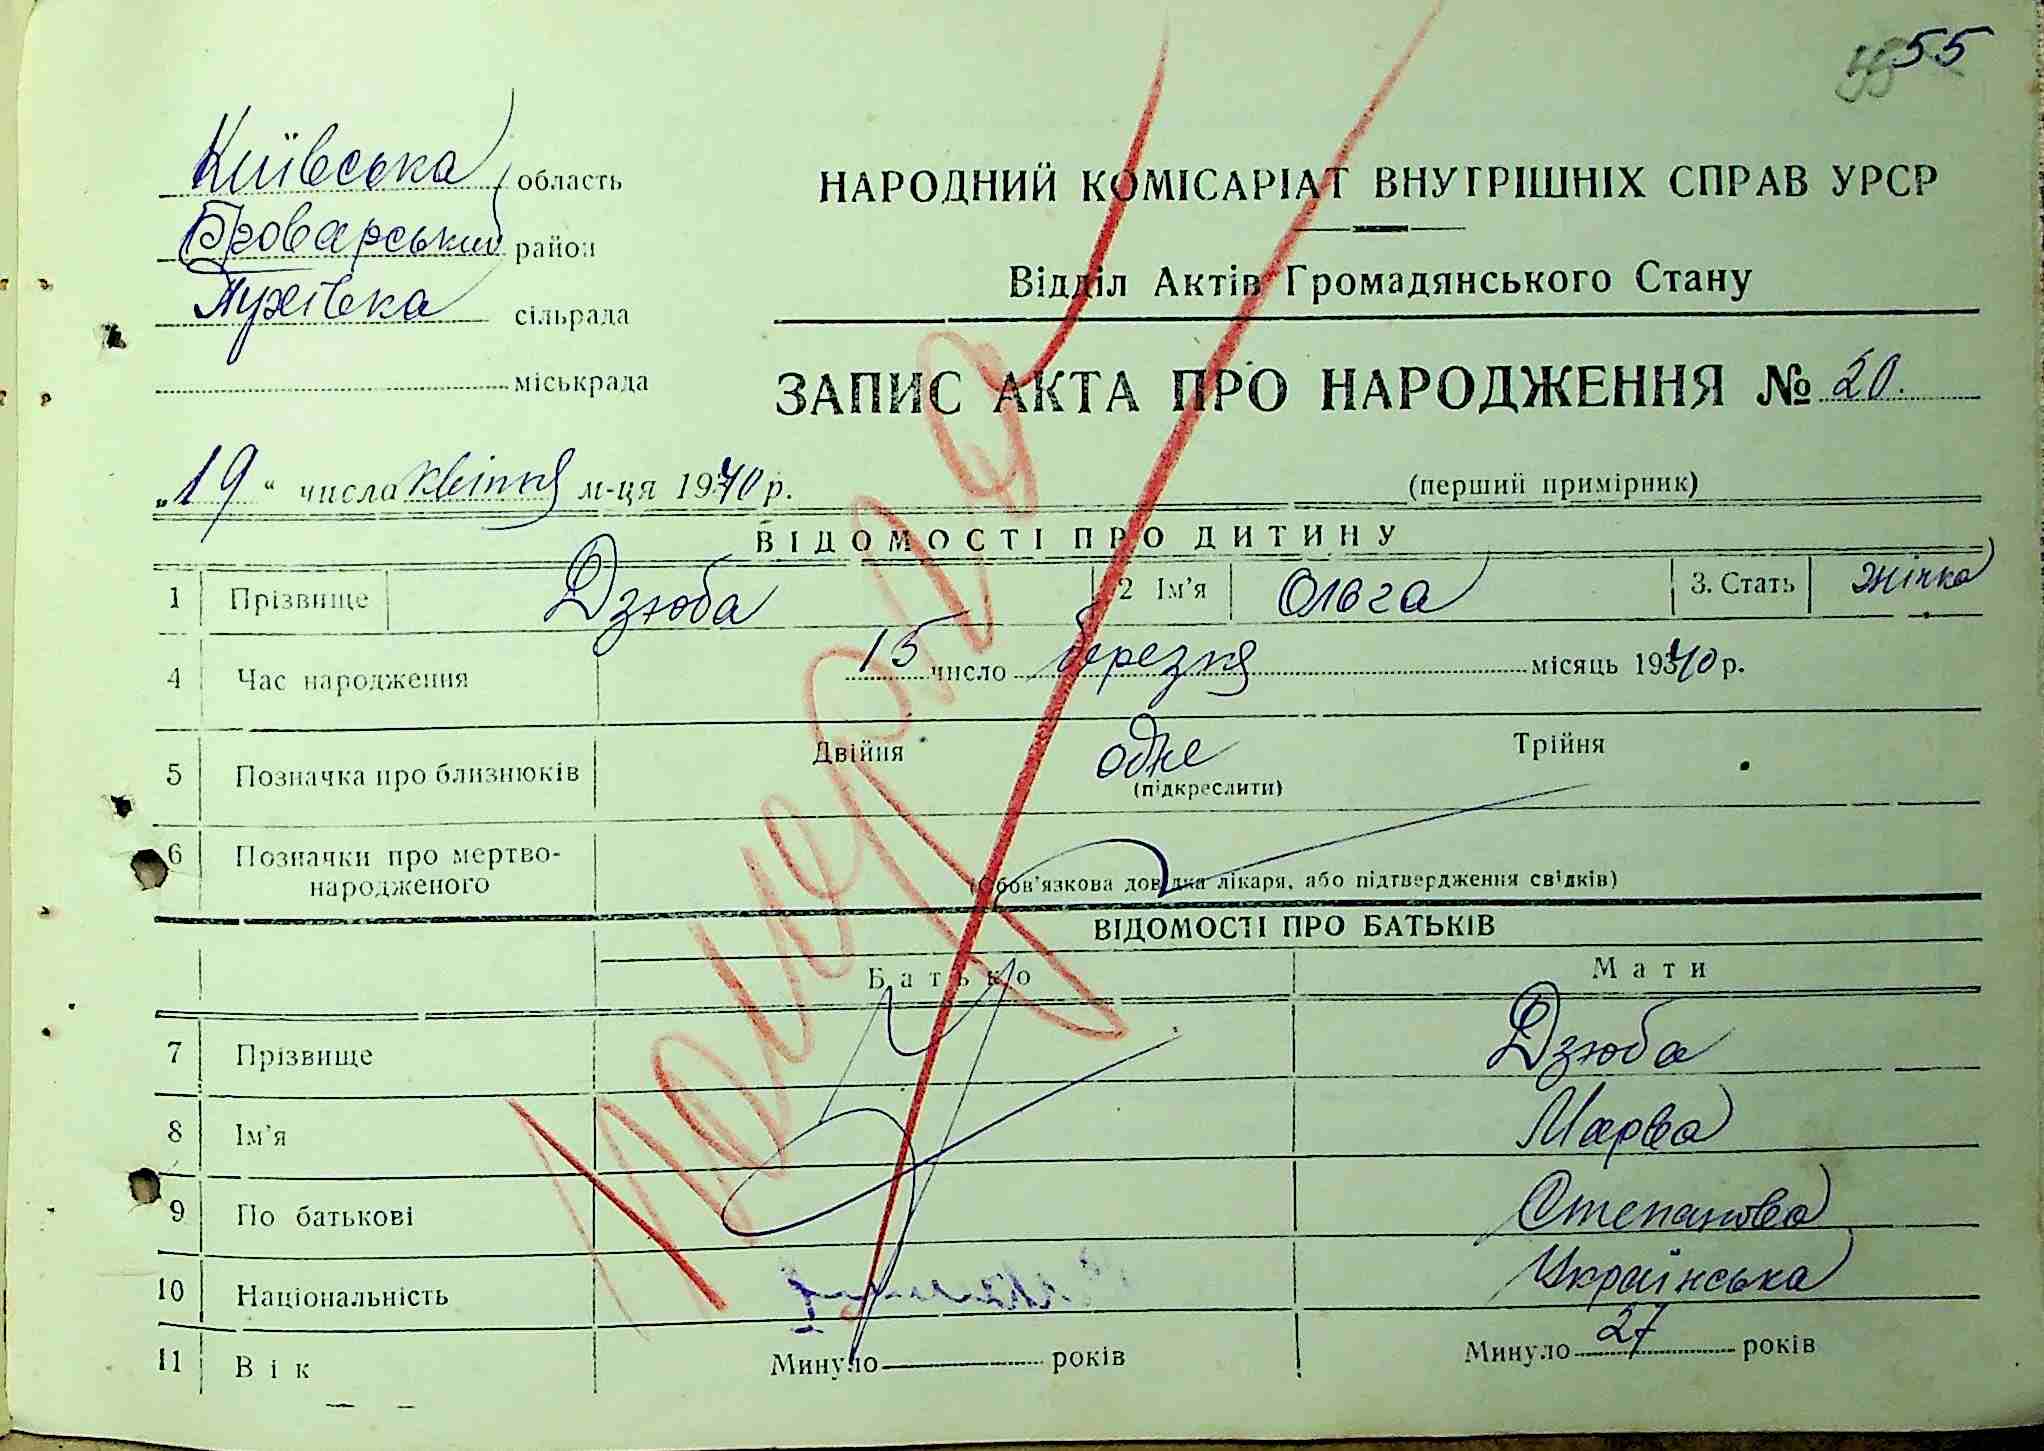 55 55
Київська область
Броварський район
Пухівка сільрада
міськрада
НАРОДНИЙ КОМІСАРІАТ ВНУТРІШНІХ СПРАВ УРСР
Відділ Актів Громадянського Стану
ЗАПИС АКТА ПРО НАРОДЖЕННЯ № 20.
„19“ числа квітня м-ця 1940 р.
(перший примірник)
ВІДОМОСТІ ПРО ДИТИНУ
1 Прізвище Дзюба 2 Ім'я Ольга 3. Стать жінка
4 Час народження 15 число березня місяць 1940 р.
5 Позначка про близнюків Двійня одне Трійня
(підкреслити)
6 Позначки про мертво-
народженого
(Обов'язкова довідка лікаря, або підтвердження свідків)
ВІДОМОСТІ ПРО БАТЬКІВ
Батько Мати
7 Прізвище Дзюба
8 Ім'я Марва
9 По батькові Степанова
10 Національність Українська
11 Вік Минуло років Минуло 27 років